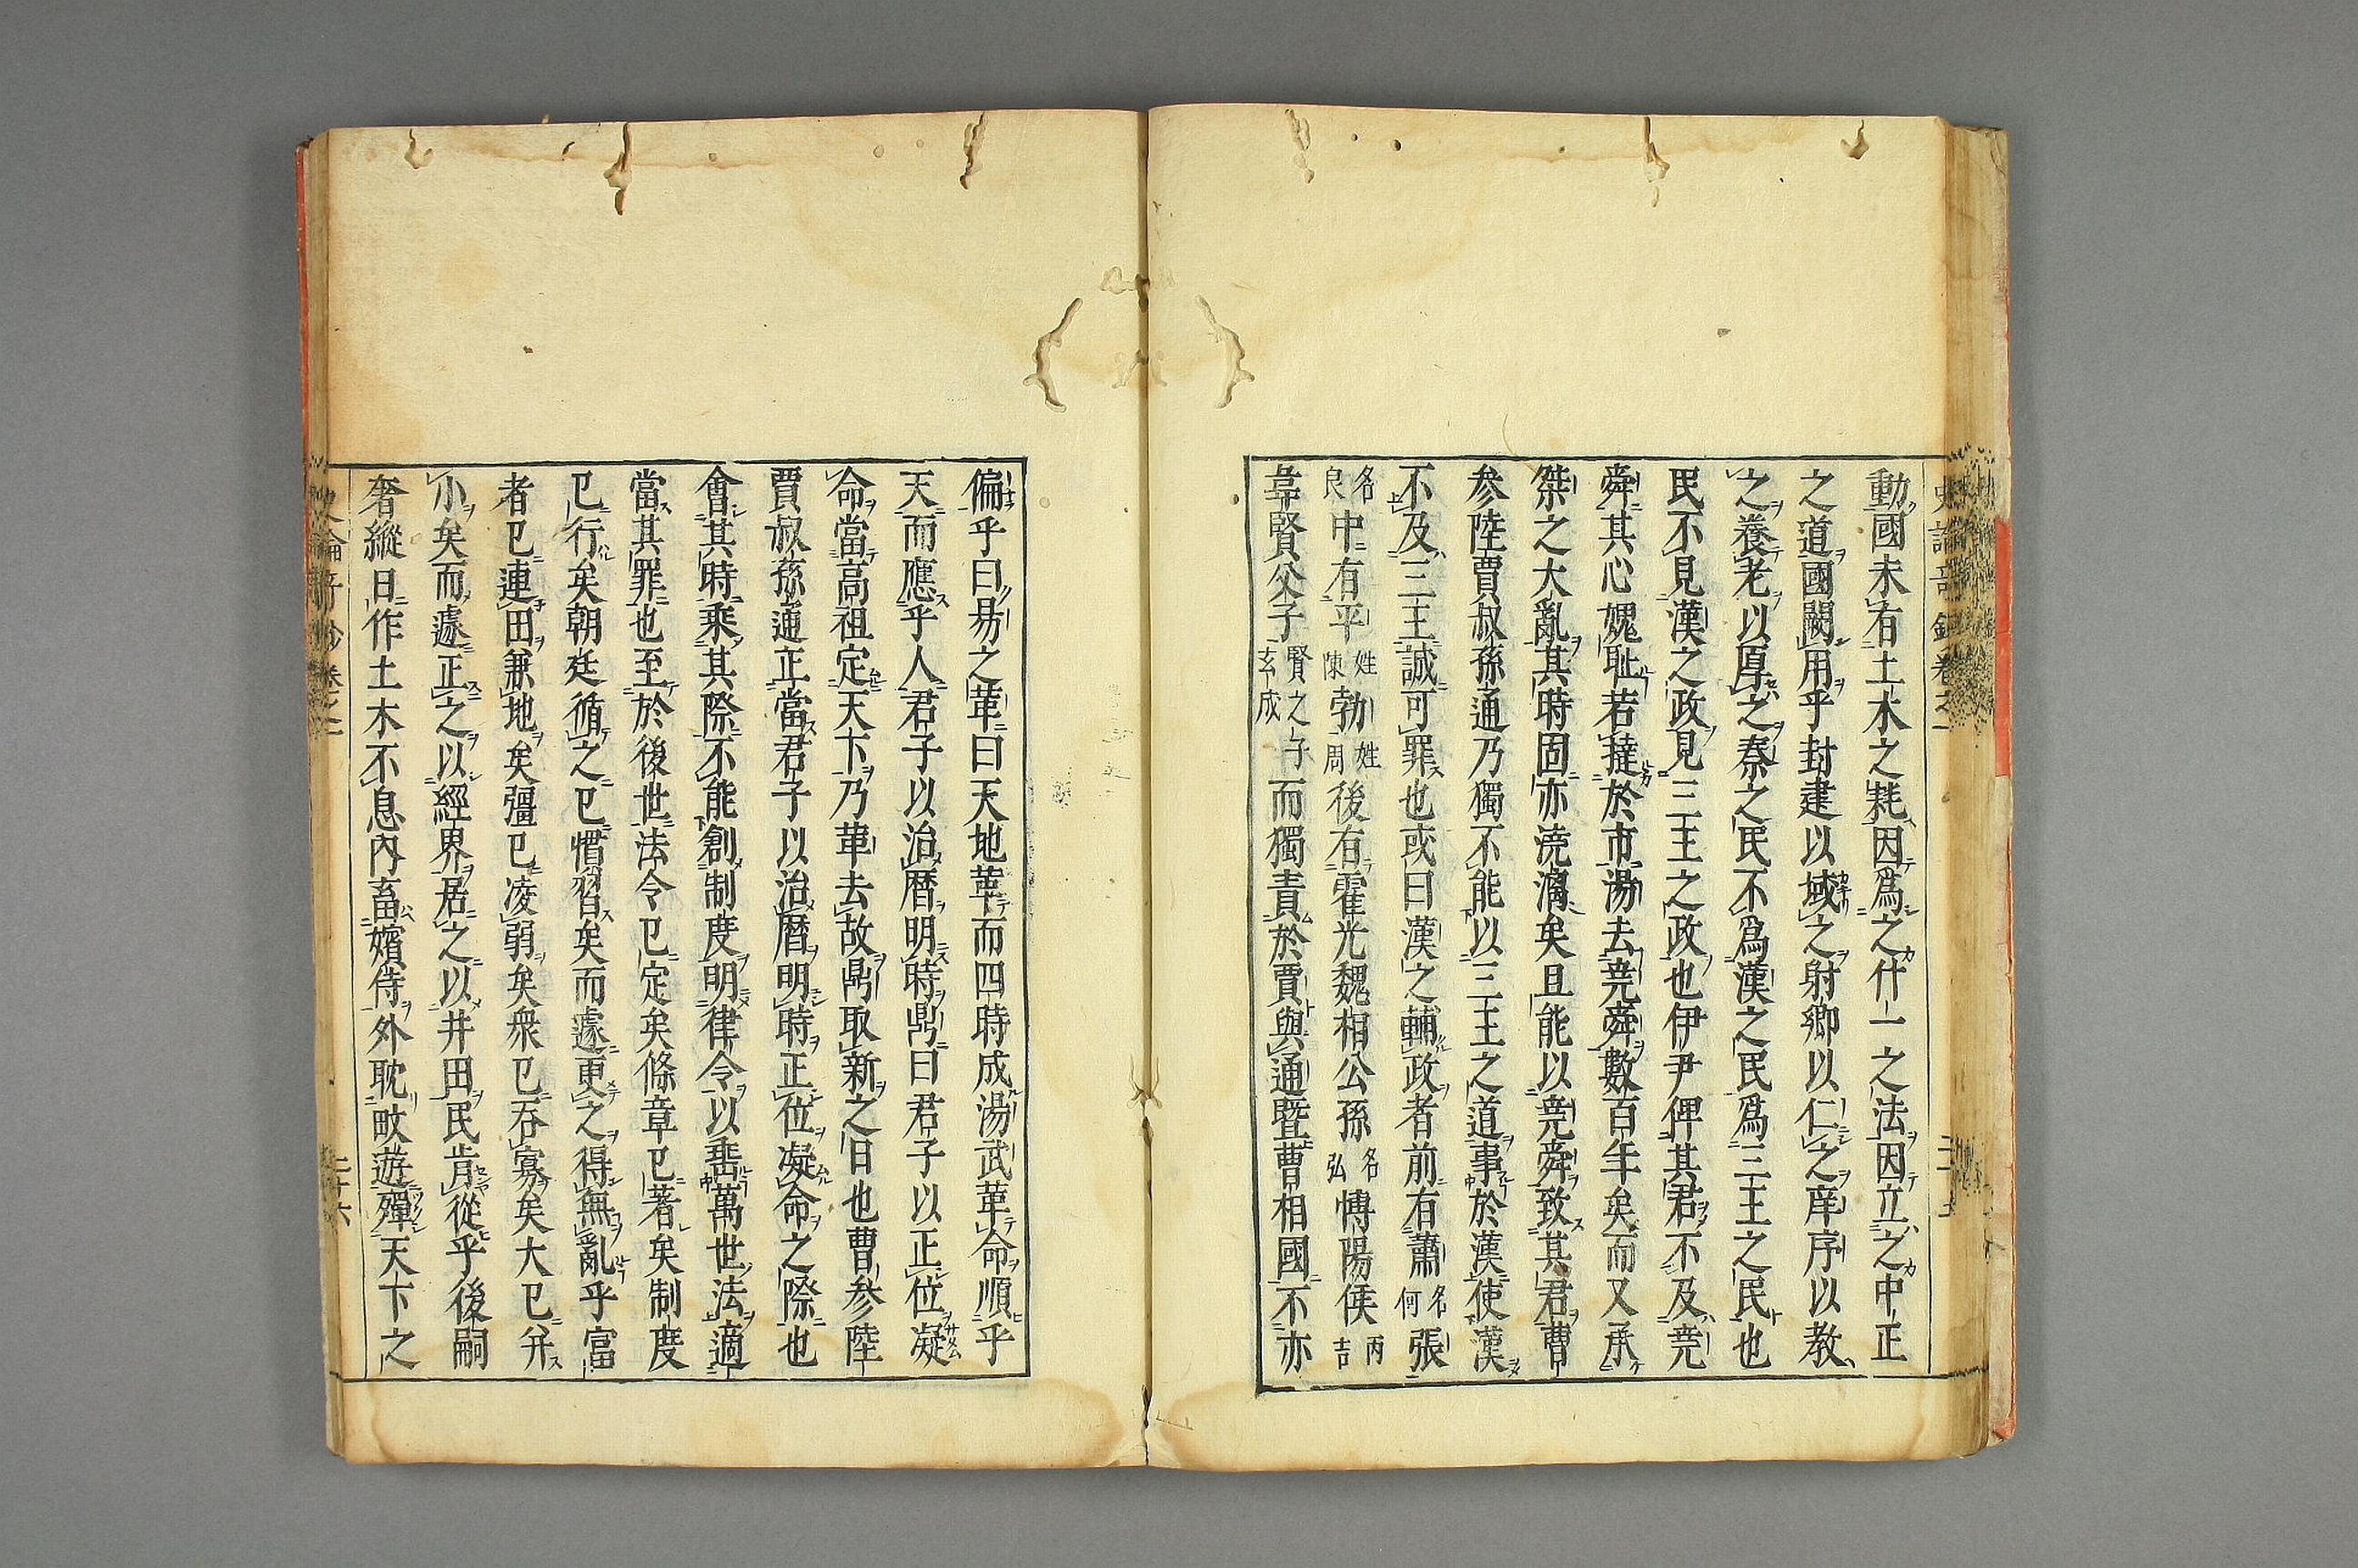 動國未有土木之耗因爲之什一之法因立之中正
之道國闕用乎封建以域之射鄉以仁之庠序以教
之養老以厚之秦之民不爲漢之民爲三王之民也
民不見漢之政見三王之政也伊尹俾其君不及堯
舜其心媿耻若撻於市湯去堯舜數百年矣而又承
桀之大亂其時固亦澆漓矣且能以堯舜致其君曹
參陸賈叔孫通乃獨不能以三王之道事於漢使漢
不及三王誠可罪也或曰漢之輔政者前有蕭名何張
名良中有平姓陳勃姓周後有霍光魏相公孫名弘博陽侯丙吉
韋賢父子賢之子玄成而獨責於賈與通曁曹相國不亦
偏乎曰易之革曰天地革而四時成湯武革命順乎
天而應乎人君子以治曆明時鼎曰君子以正位凝
命當高祖定天下乃革去故鼎取新之日也曹參陸
賈叔孫通正當君子以治曆明時正位凝命之際也
會其時乘其際不能創制度明律令以垂萬世法適
當其罪也至於後世法令已定矣條章已著矣制度
已行矣朝廷循之已慣習矣而遽更之得無亂乎富
者已連田兼地矣彊已凌弱矣衆已吞寡矣大已弁
小矣而遽正之以經界居之以井田民肯從乎後嗣
奢縱日作土木不息內畜嬪侍外耽畋遊殫天下之
二十六